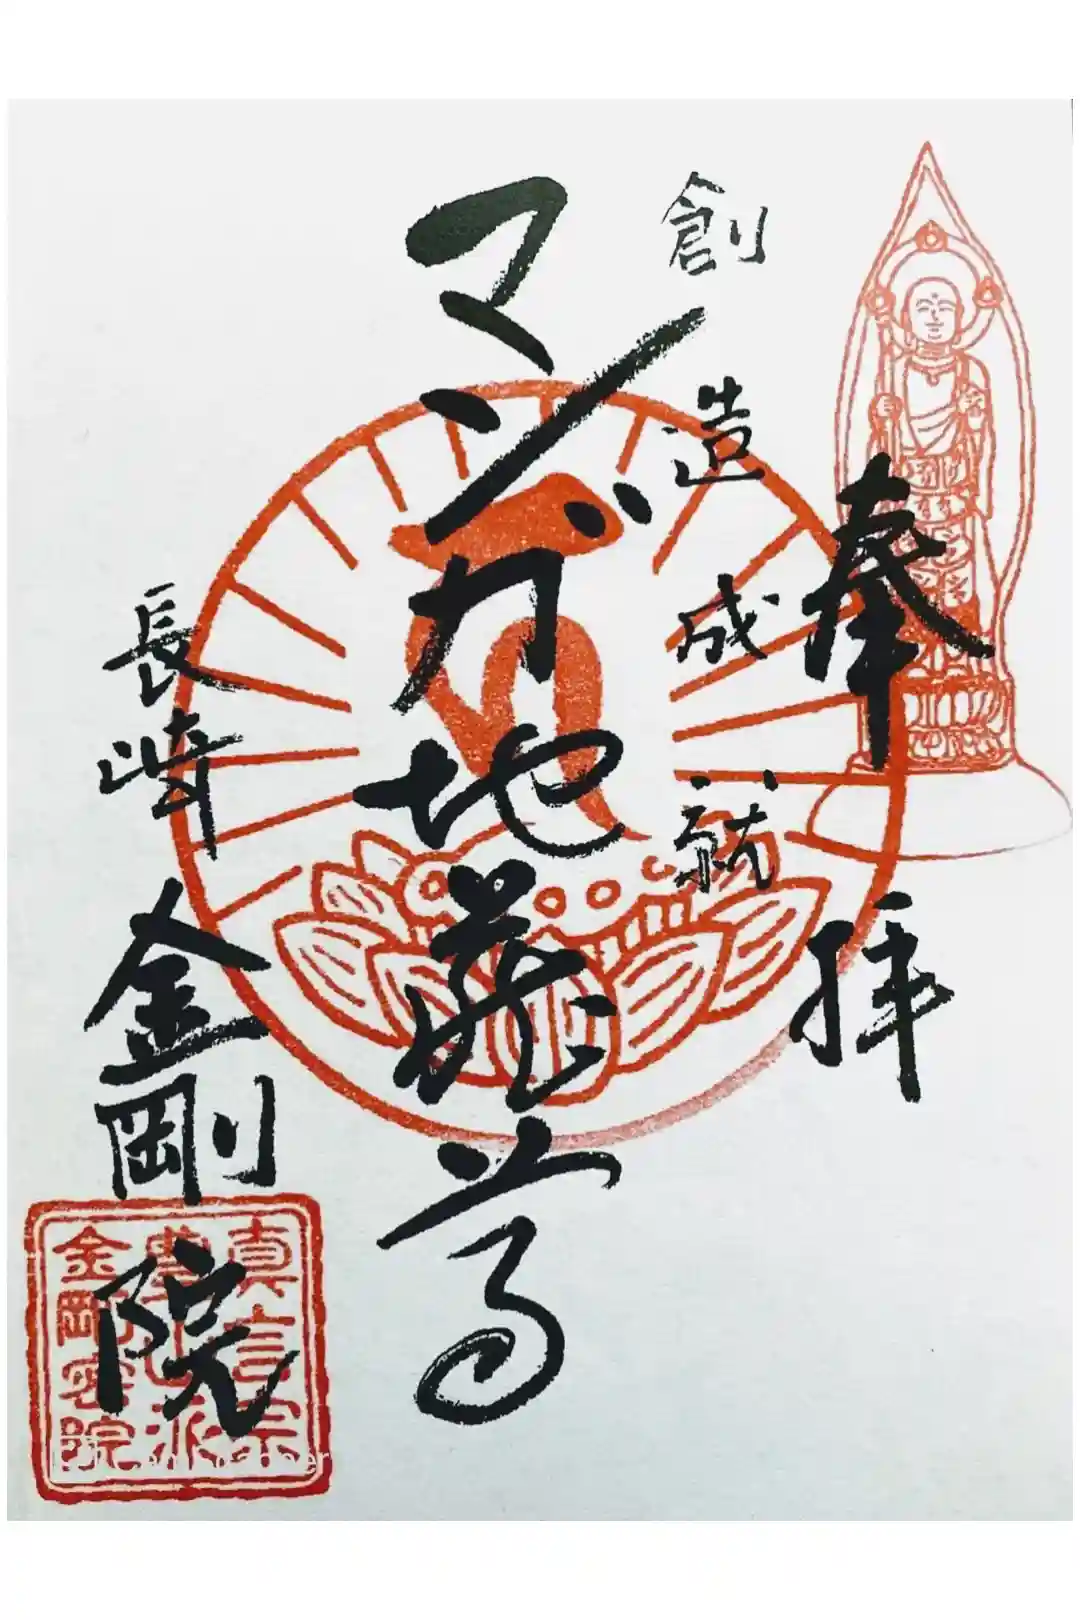 奉拝
創造成就
マンガ地蔵尊
長崎 金剛院
真言宗
豊山派
金剛密院